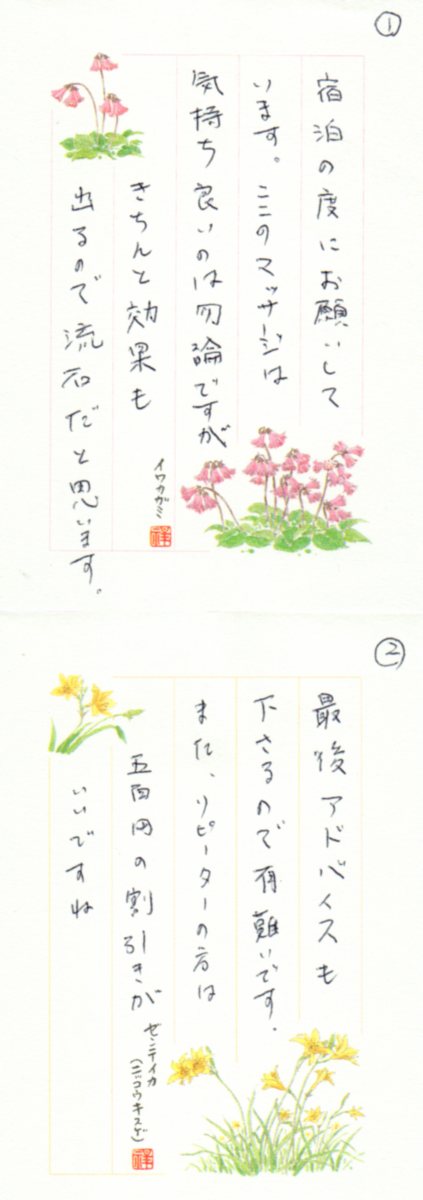 ①
宿泊の度にお願いして
います。ここのマッサージは
気持ち良いのは勿論ですが
きちんと効果も
出るので流石だと思います。
イワカガミ
②
最後アドバイスも
下さるので有難いです。
また、リピーターの方は
五百円の割引きが
いいですね
ゼンテイカ
(ニッコウキスゲ)